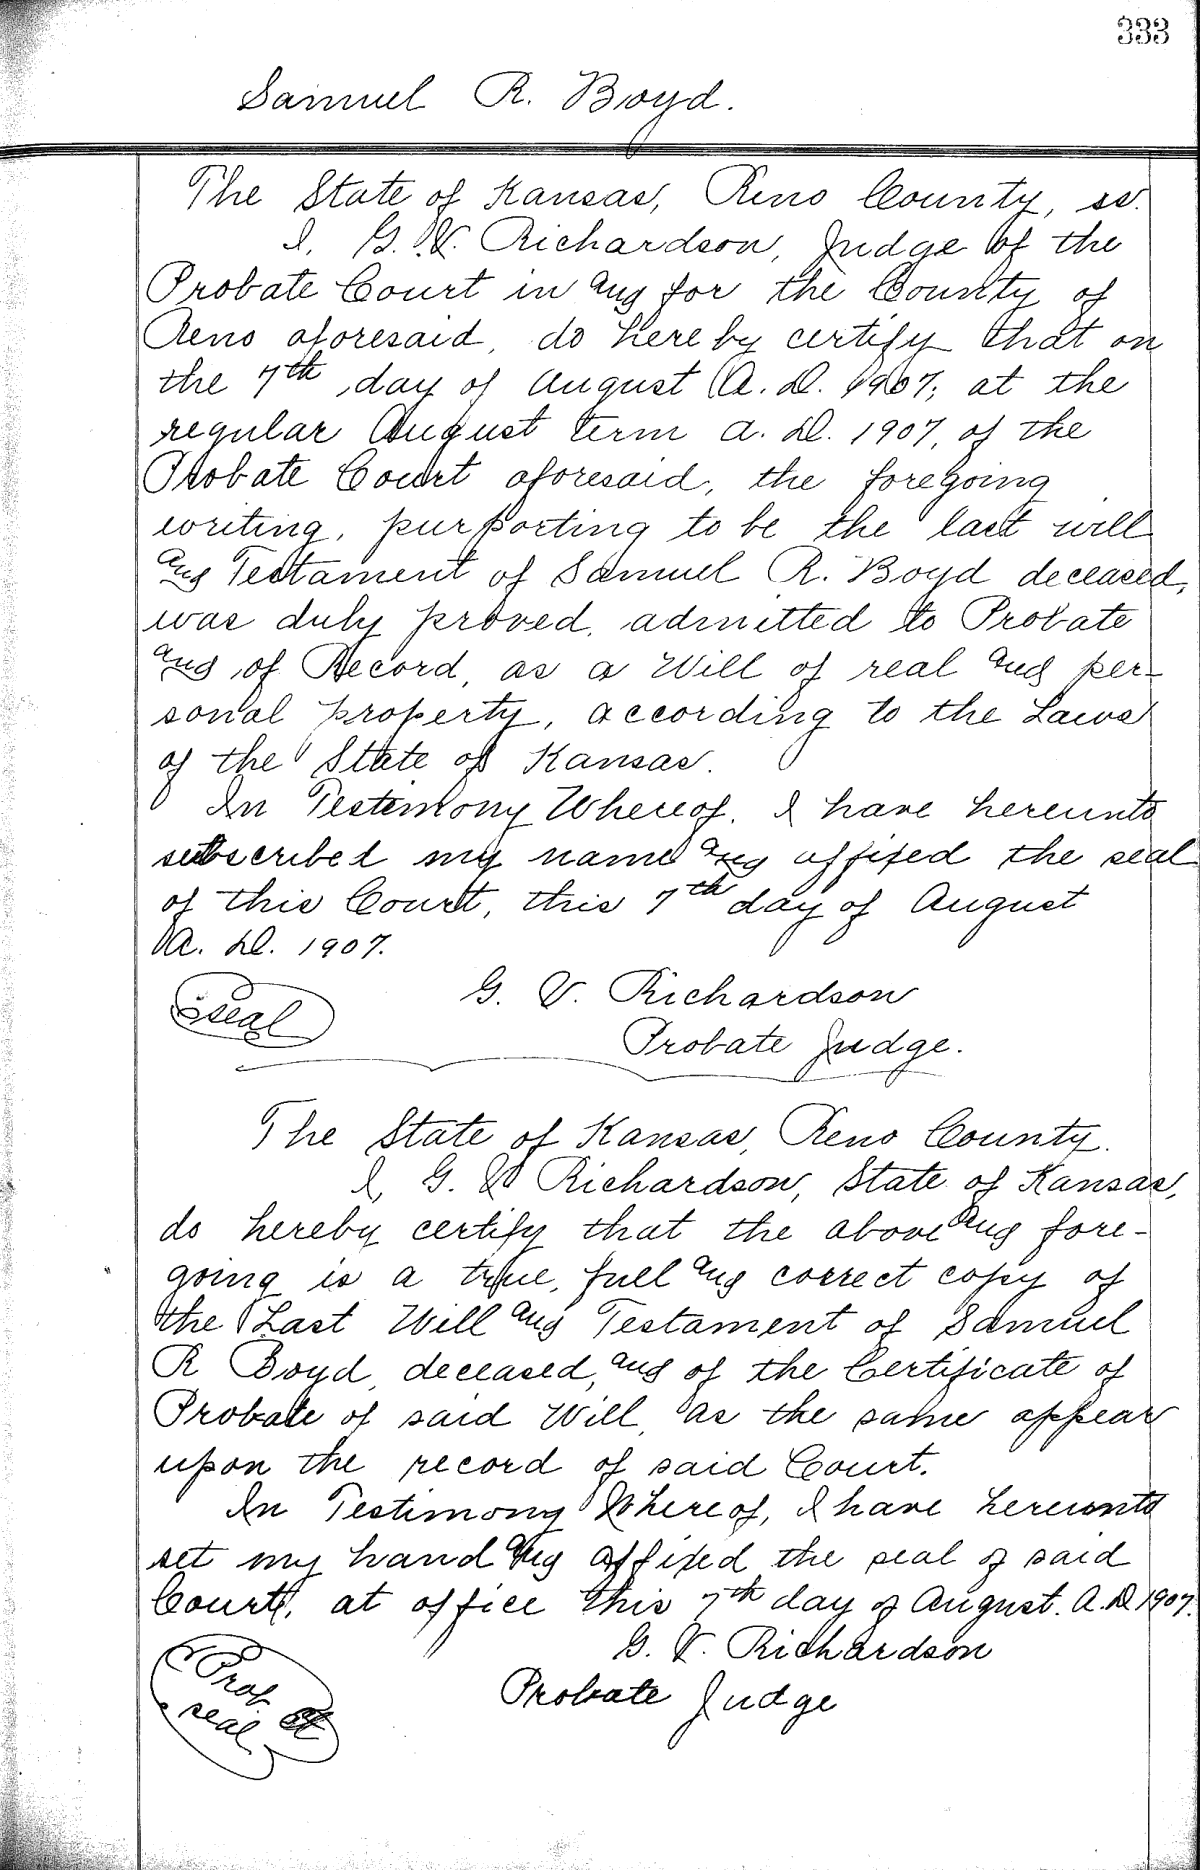 333
Samuel R. Boyd.
The State of Kansas, Reno County, ss.
I, G. V. Richardson, Judge of the
Probate Court in and for the County of
Reno aforesaid, do hereby certify that on
the 7th day of August A. D. 1907, at the
regular August term A. D. 1907, of the
Probate Court aforesaid, the foregoing
writing, purporting to be the last will
and Testament of Samuel R. Boyd deceased,
was duly proved, admitted to Probate
and of Record, as a Will of real and per-
sonal property, according to the Laws
of the State of Kansas.
In Testimony Whereof, I have hereunto
subscribed my name and affixed the seal
of this Court, this 7th day of August
A. D. 1907.
Seal
G. V. Richardson
Probate Judge.
The State of Kansas, Reno County.
I, G. V Richardson, State of Kansas,
do hereby certify that the above and fore-
going is a true, full and correct copy of
the Last Will and Testament of Samuel
R Boyd, deceased, and of the Certificate of
Probate of said Will, as the same appear
upon the record of said Court.
In Testimony Whereof, I have hereunto
set my hand and affixed the seal of said
Court, at office this 7th day of August. A. D. 1907.
G. V. Richardson
Probate Judge
Prob. Ct
seal